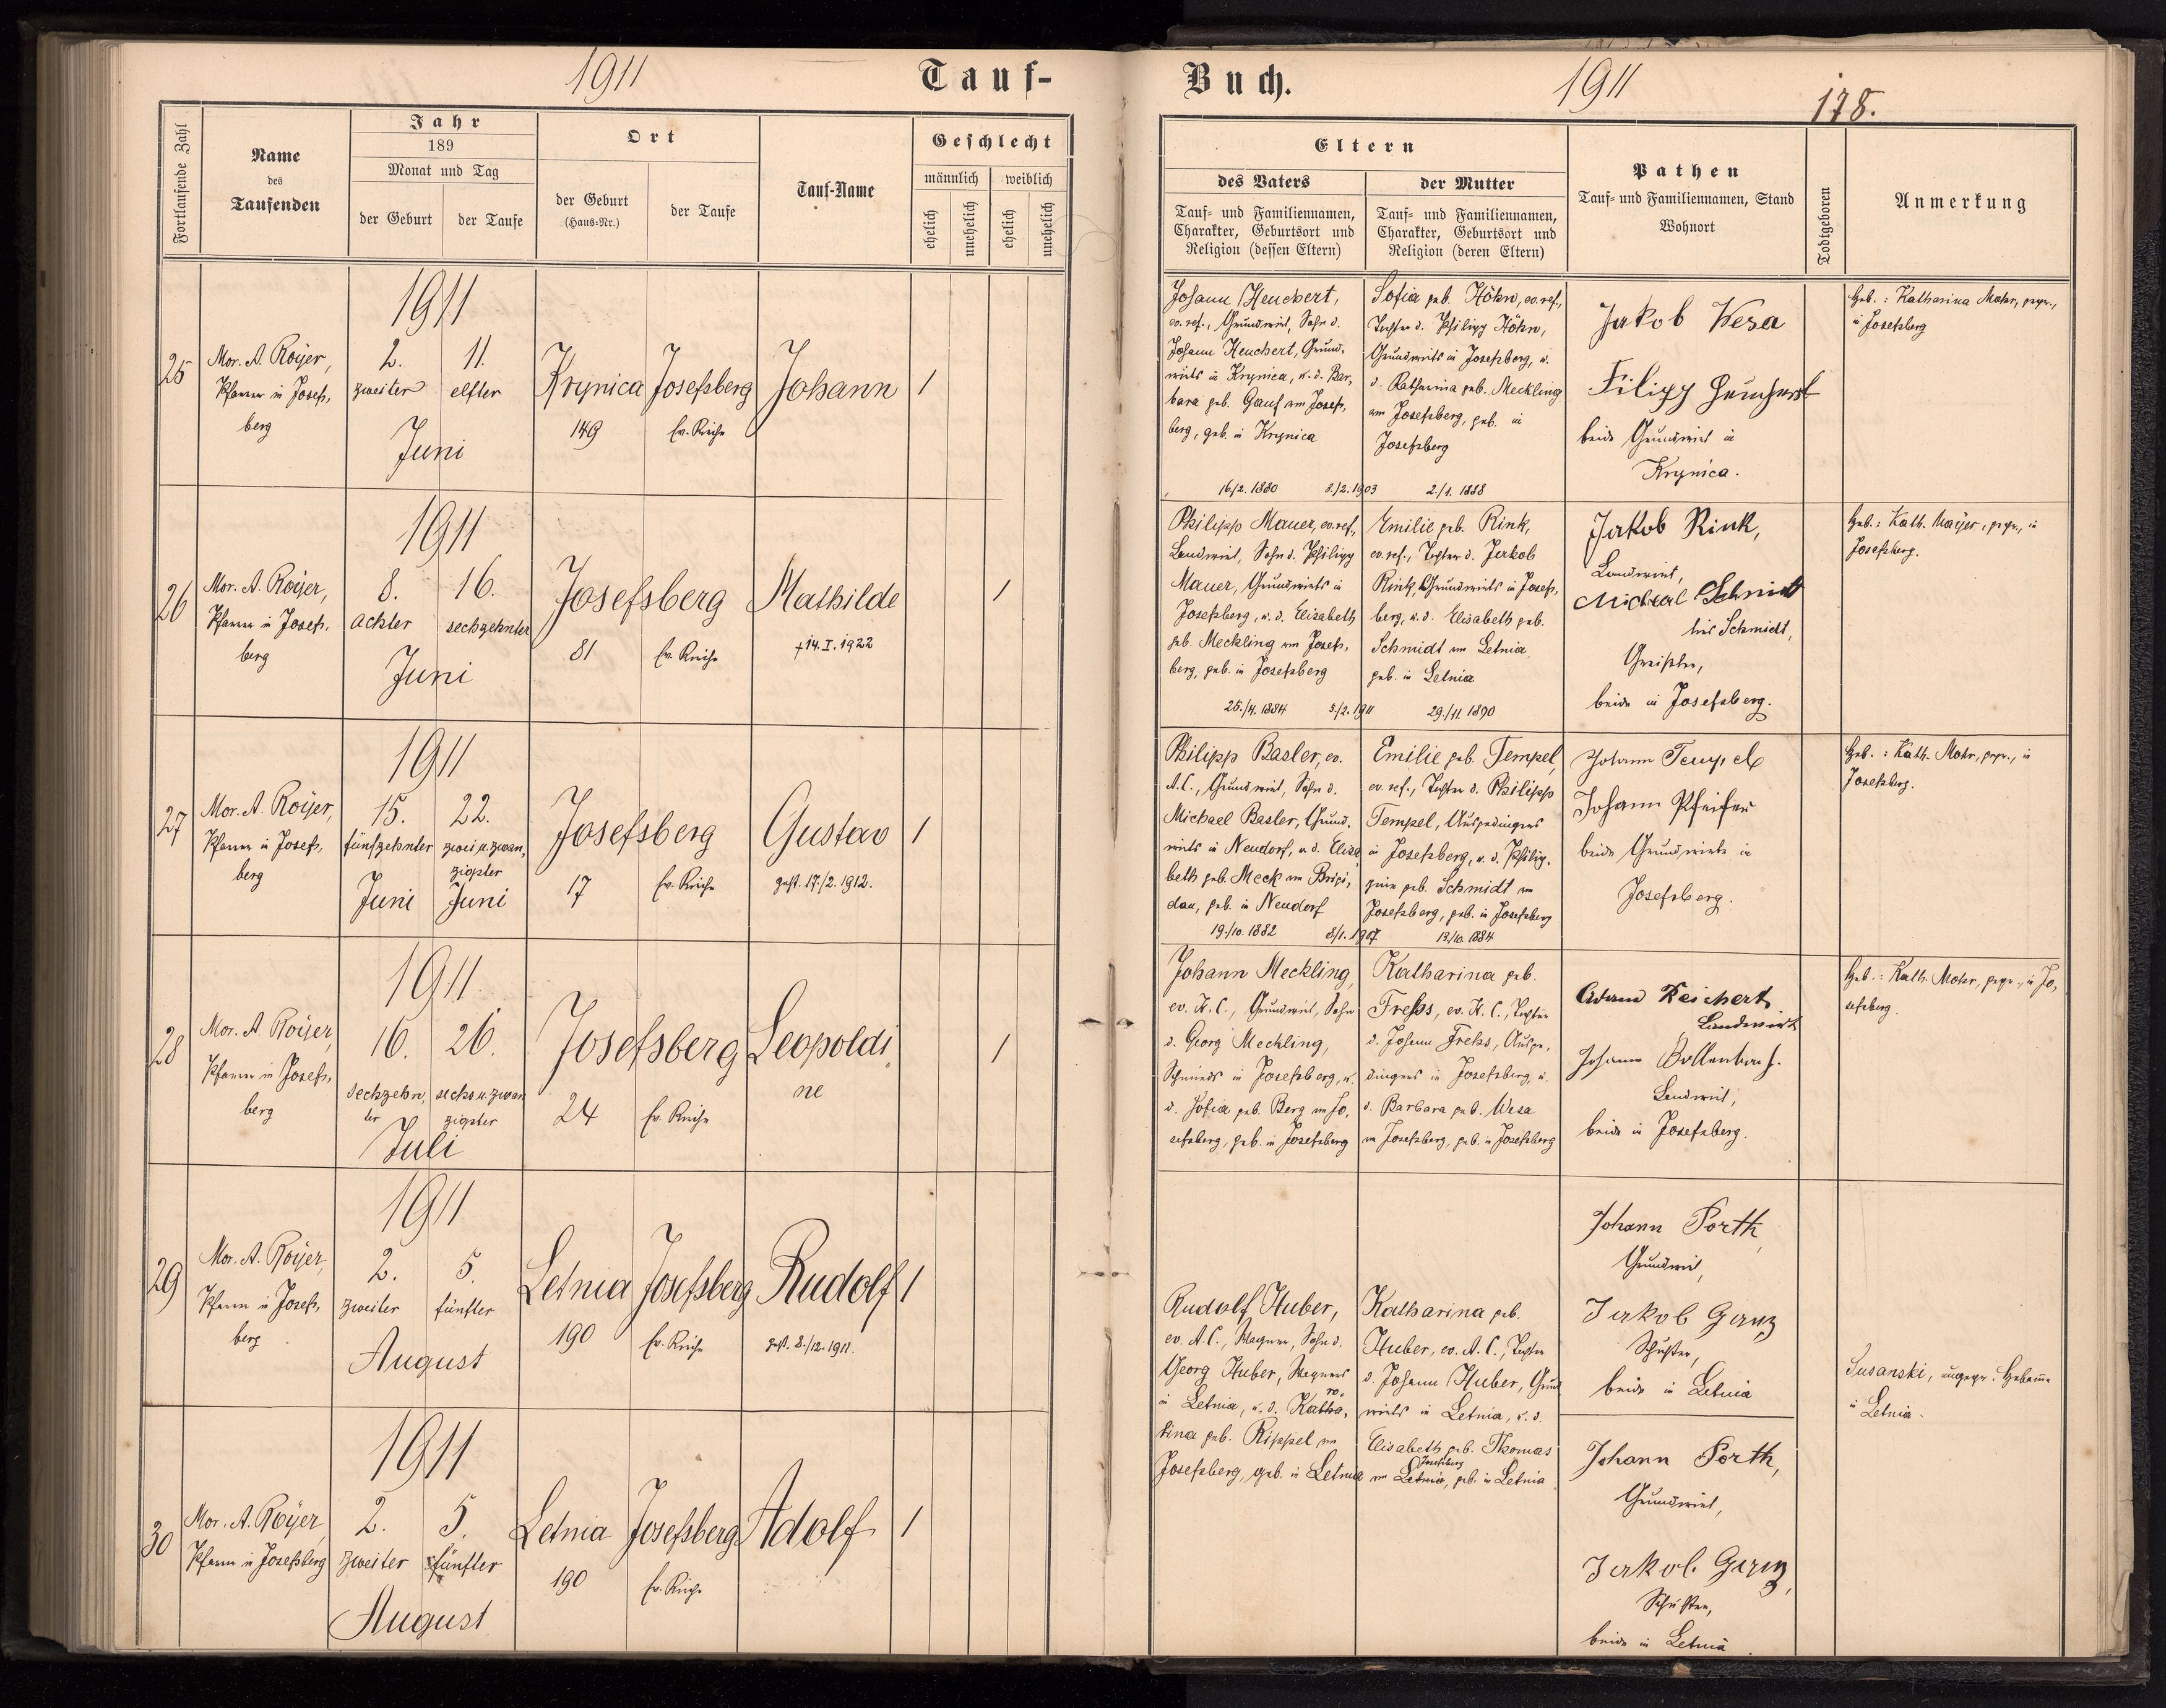 1911
Tauf-
Buch.
1911
178.
Fortlaufende Zahl
Name
des
Taufenden
Jahr
189
Monat und Tag
der Geburt
der Taufe
Ort
der Geburt
(Haus-Nr.)
der Taufe
Tauf-Name
Geschlecht
männlich
weiblich
ehelich
unehelich
ehelich
unehelich
Eltern
des Vaters
Tauf- und Familiennamen,
Charakter, Geburtsort und
Religion (dessen Eltern)
der Mutter
Tauf- und Familiennamen,
Charakter, Geburtsort und
Religion (deren Eltern)
Pathen
Tauf- und Familiennamen, Stand
Wohnort
Todtgeboren
Anmerkung
25
Mor. A. Royer,
Pfarrer in Josefs-
berg
1911
2.
zweiter
11.
elfter
Juni
Krynica
149
Josefsberg
Ev. Kirche
Johann
1
Johann Heuchert,
ev. ref., Grundwirt, Sohn d.
Johann Heuchert, Grund-
wirts in Krynica, u. d. Bar-
bara geb. Gauf aus Josefs-
berg, geb. in Krynica
16/2. 1880
3./2. 1903
Sofia geb. Höhn, ev. ref.,
Tochter d. Philipp Höhn,
Grundwirts in Josefsberg, u.
d. Katharina geb. Meckling
aus Josefsberg, geb. in
Josefsberg
2./1. 1888
Jakob Wesa
Filipp Heuchert
beide Grundwirte in
Krynica.
Geb.: Katharina Mohr, gepr.,
in Josefsberg
26
Mor. A. Royer,
Pfarrer in Josefs-
berg
1911
8.
achter
16.
sechzehnter
Juni
Josefsberg
81
Ev. Kirche
Mathilde
† 14. I. 1922
1
Philipp Mauer, ev. ref.,
Landwirt, Sohn d. Philipp
Mauer, Grundwirts in
Josefsberg, u. d. Elisabeth
geb. Meckling aus Josefs-
berg, geb. in Josefsberg
25./4. 1884
5/2. 1911
Emilie geb. Rink,
ev. ref., Tochter d. Jakob
Rink, Grundwirts in Josefs-
berg, u. d. Elisabeth geb.
Schmidt aus Letnia,
geb. in Letnia
29./11. 1890
Jakob Rink,
Landwirt,
Michael Schmidt
Schmidt,
Greißler,
beide in Josefsberg.
Geb.: Kath. Mayer, gepr., in
Josefsberg.
27
Mor. A. Royer,
Pfarrer in Josefs-
berg
1911
15.
fünfzehnter
Juni
22.
zwei u. zwan-
zigster
Juni
Josefsberg
17
Ev. Kirche
Gustav
gest. 17./2. 1912.
1
Philipp Basler, ev.
A. C., Grundwirt, Sohn d.
Michael Basler, Grund-
wirts in Neudorf, u. d. Elisa-
beth geb. Meck aus Brigi-
dau, geb. in Neudorf
19./10. 1882
8/1. 1907
Emilie geb. Tempel,
ev. ref., Tochter d. Philipp
Tempel, Ausgedingers
in Josefsberg, u. d. Philip-
pine geb. Schmidt aus
Josefsberg, geb. in Josefsberg
13./10. 1884
Johann Tempel
Johann Pfeifer
beide Grundwirte in
Josefsberg.
Geb.: Kath. Mohr, gepr., in
Josefsberg.
28
Mor. A. Royer,
Pfarrer in Josefs-
berg
1911
16.
sechzehn-
ter
26.
sechs u. zwan
zigster
Juli
Josefsberg
24
Ev. Kirche
Leopoldi
ne
1
Johann Meckling,
ev. H. C., Grundwirt, Sohn
d. Georg Meckling,
Schmieds in Josefsberg, u.
d. Sofia geb. Berg aus Jo-
sefsberg, geb. in Josefsberg
Katharina geb.
Frehs, ev. H. C., Tochter
d. Johann Frehs, Ausge-
dingers in Josefsberg, u.
d. Barbara geb. Wesa
aus Josefsberg, geb. in Josefsberg
Adam Reichert
Landwirt
Johann Bollenbach.
Landwirt,
beide in Josefsberg.
Geb.: Kath. Mohr, gepr., in Jo-
sefsberg.
29
Mor. A. Royer,
Pfarrer in Josefs-
berg
1911
2.
zweiter
5.
fünfter
August
Letnia
190
Josefsberg
Ev. Kirche
Rudolf
gest. 8./12. 1911.
1
Rudolf Huber,
ev. A. C., Wagner, Sohn d.
Georg Huber, Wagners
in Letnia, u. d. Katha-
rina geb. Rippel aus
Josefsberg, geb. in Letnia
Katharina geb.
Huber, ev. A. C., Tochter
d. Johann Huber, Grund
wirts in Letnia, u. d.
Elisabeth geb. Thomas
Josefsberg
aus Letnia, geb. in Letnia
Johann Porth,
Grundwirt,
Jakob Ganz
Schuster,
beide in Letnia
Susanski, ungepr. Hebamme
in Letnia.
30
Mor. A. Royer
Pfarrer in Josefsberg
1911
2.
zweiter
5.
fünfter
August
Letnia
190
Josefsberg
Ev. Kirche
Adolf
1
Johann Porth,
Grundwirt,
Jakob Ganz,
Schuster,
beide in Letnia.